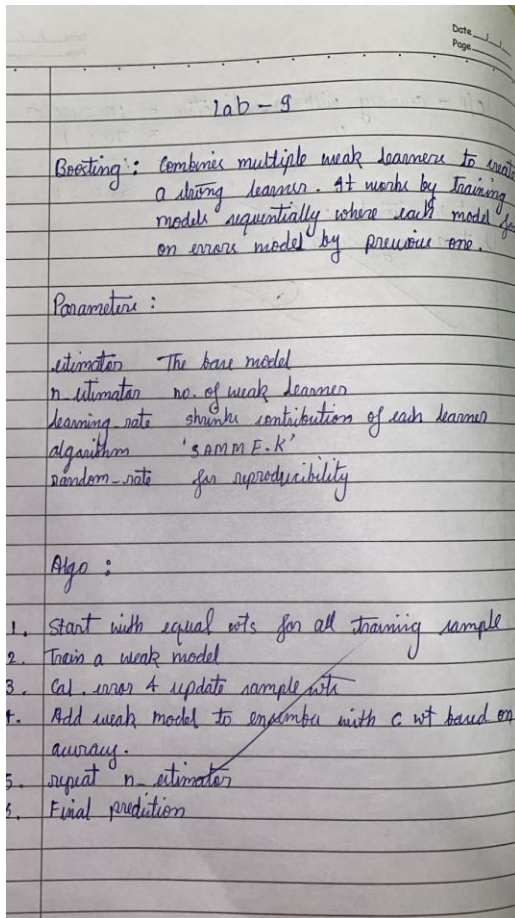 Date
Page
Lab - 9
Boosting : Combines multiple weak learners to creat
a strong learner. It works by training
models sequentially where each model fo
on errors model by previous one.
Parameters :
estimator The base model
n_estimator no. of weak learner
learning_rate shrinks contribution of each learner
algorithm 'SAMME.R'
random_state for reproducibility
Algo :
1. Start with equal wts for all training sample
2. Train a weak model
3. Cal. error & update sample wts
4. Add weak model to ensembler with c wt based on
accuracy.
5. repeat n_estimator
6. Final prediction